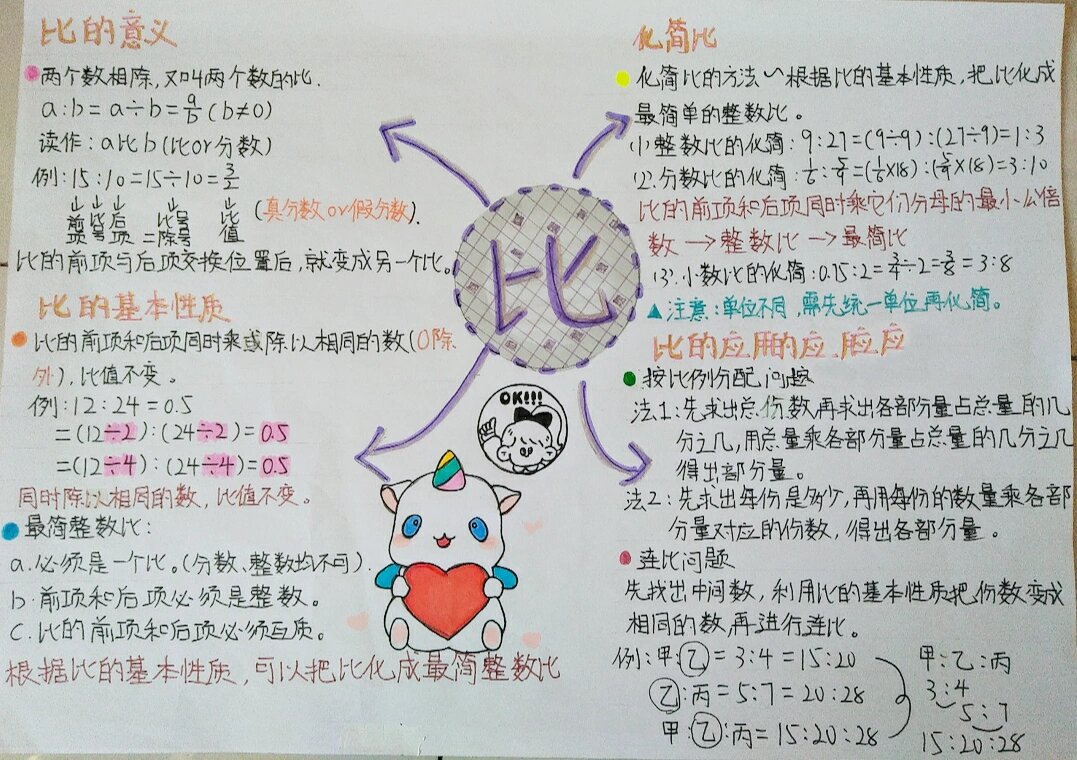 比的意义
两个数相除,又叫两个数的比.
a:b=a÷b=a/b(b≠0)
读作:a比b(比or分数)
例:15:10=15÷10=3/2
↓↓↓ ↓ ↓
前项 比号 后项 =比号除号 比值
(真分数or假分数).
比的前项与后项交换位置后,就变成另一个比。
比的基本性质
比的前项和后项同时乘或除以相同的数(0除
外),比值不变。
例:12:24=0.5
=(12÷2):(24÷2)=0.5
=(12÷4):(24÷4)=0.5
同时除以相同的数,比值不变。
最简整数比:
a.必须是一个比。(分数、整数均不可).
b.前项和后项必须是整数。
C.比的前项和后项必须互质。
根据比的基本性质,可以把比化成最简整数比
比
OK!!!
化简比
化简比的方法~根据比的基本性质,把比化成
最简单的整数比。
(1)整数比的化简:9:27=(9÷9):(27÷9)=1:3
(2).分数比的化简:
=3:10
比的前项和后项同时乘它们分母的最小公倍
数→整数比→最简比
(3).小数比的化简:0.75:2=3/4÷2=3/8=3:8
▲注意:单位不同,需先统一单位再化简。
比的应用的应用应
按比例分配问题
法1:先求出总份数,再求出各部分量占总量的几
分之几,用总量乘各部分量占总量的几分之几
得出部分量。
法2:先求出每份是多少,再用每份的数量乘各部
分量对应的份数,得出各部分量。
连比问题
先找出中间数,利用比的基本性质把份数变成
相同的数,再进行连比。
例:甲:乙=3:4=15:20
乙:丙=5:7=20:28
甲:乙:丙=15:20:28
甲:乙:丙
3:4
5:7
15:20:28